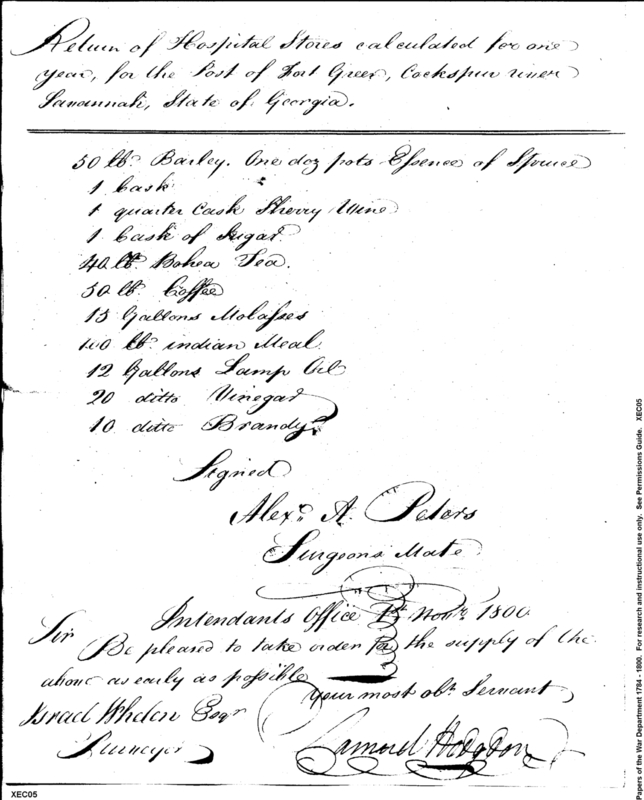 Return of Hospital Stores calculated for one
year, for the Post of Fort Green, Cockspur river
Savannah, State of Georgia.
50 lbs. Barley. One doz pots Essence of Spruce
1 Cask
1 quarter Cask Sherry Wine
1 Cask of Sugar
40 lb. Bohea Tea.
50 lb. Coffee
15 Gallons Molasses
100 lbs. indian Meal
12 Gallons Lamp Oil
20 ditto Vinegar
10 ditto Brandy
Signed
Alexr. A. Peters
Surgeons Mate
Intendants Office Novr. 1800
Sir
Be pleased to take order for the supply of the
above as early as possible
your most obt. Servant
Israel Whelen Esqr
Purveyor
Samuel Hodgdon
XEC05
Papers of the War Department 1784 - 1800. For research and instructional use only. See Permissions Guide. XEC05